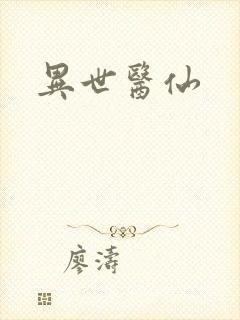 異世醫仙
廖濤